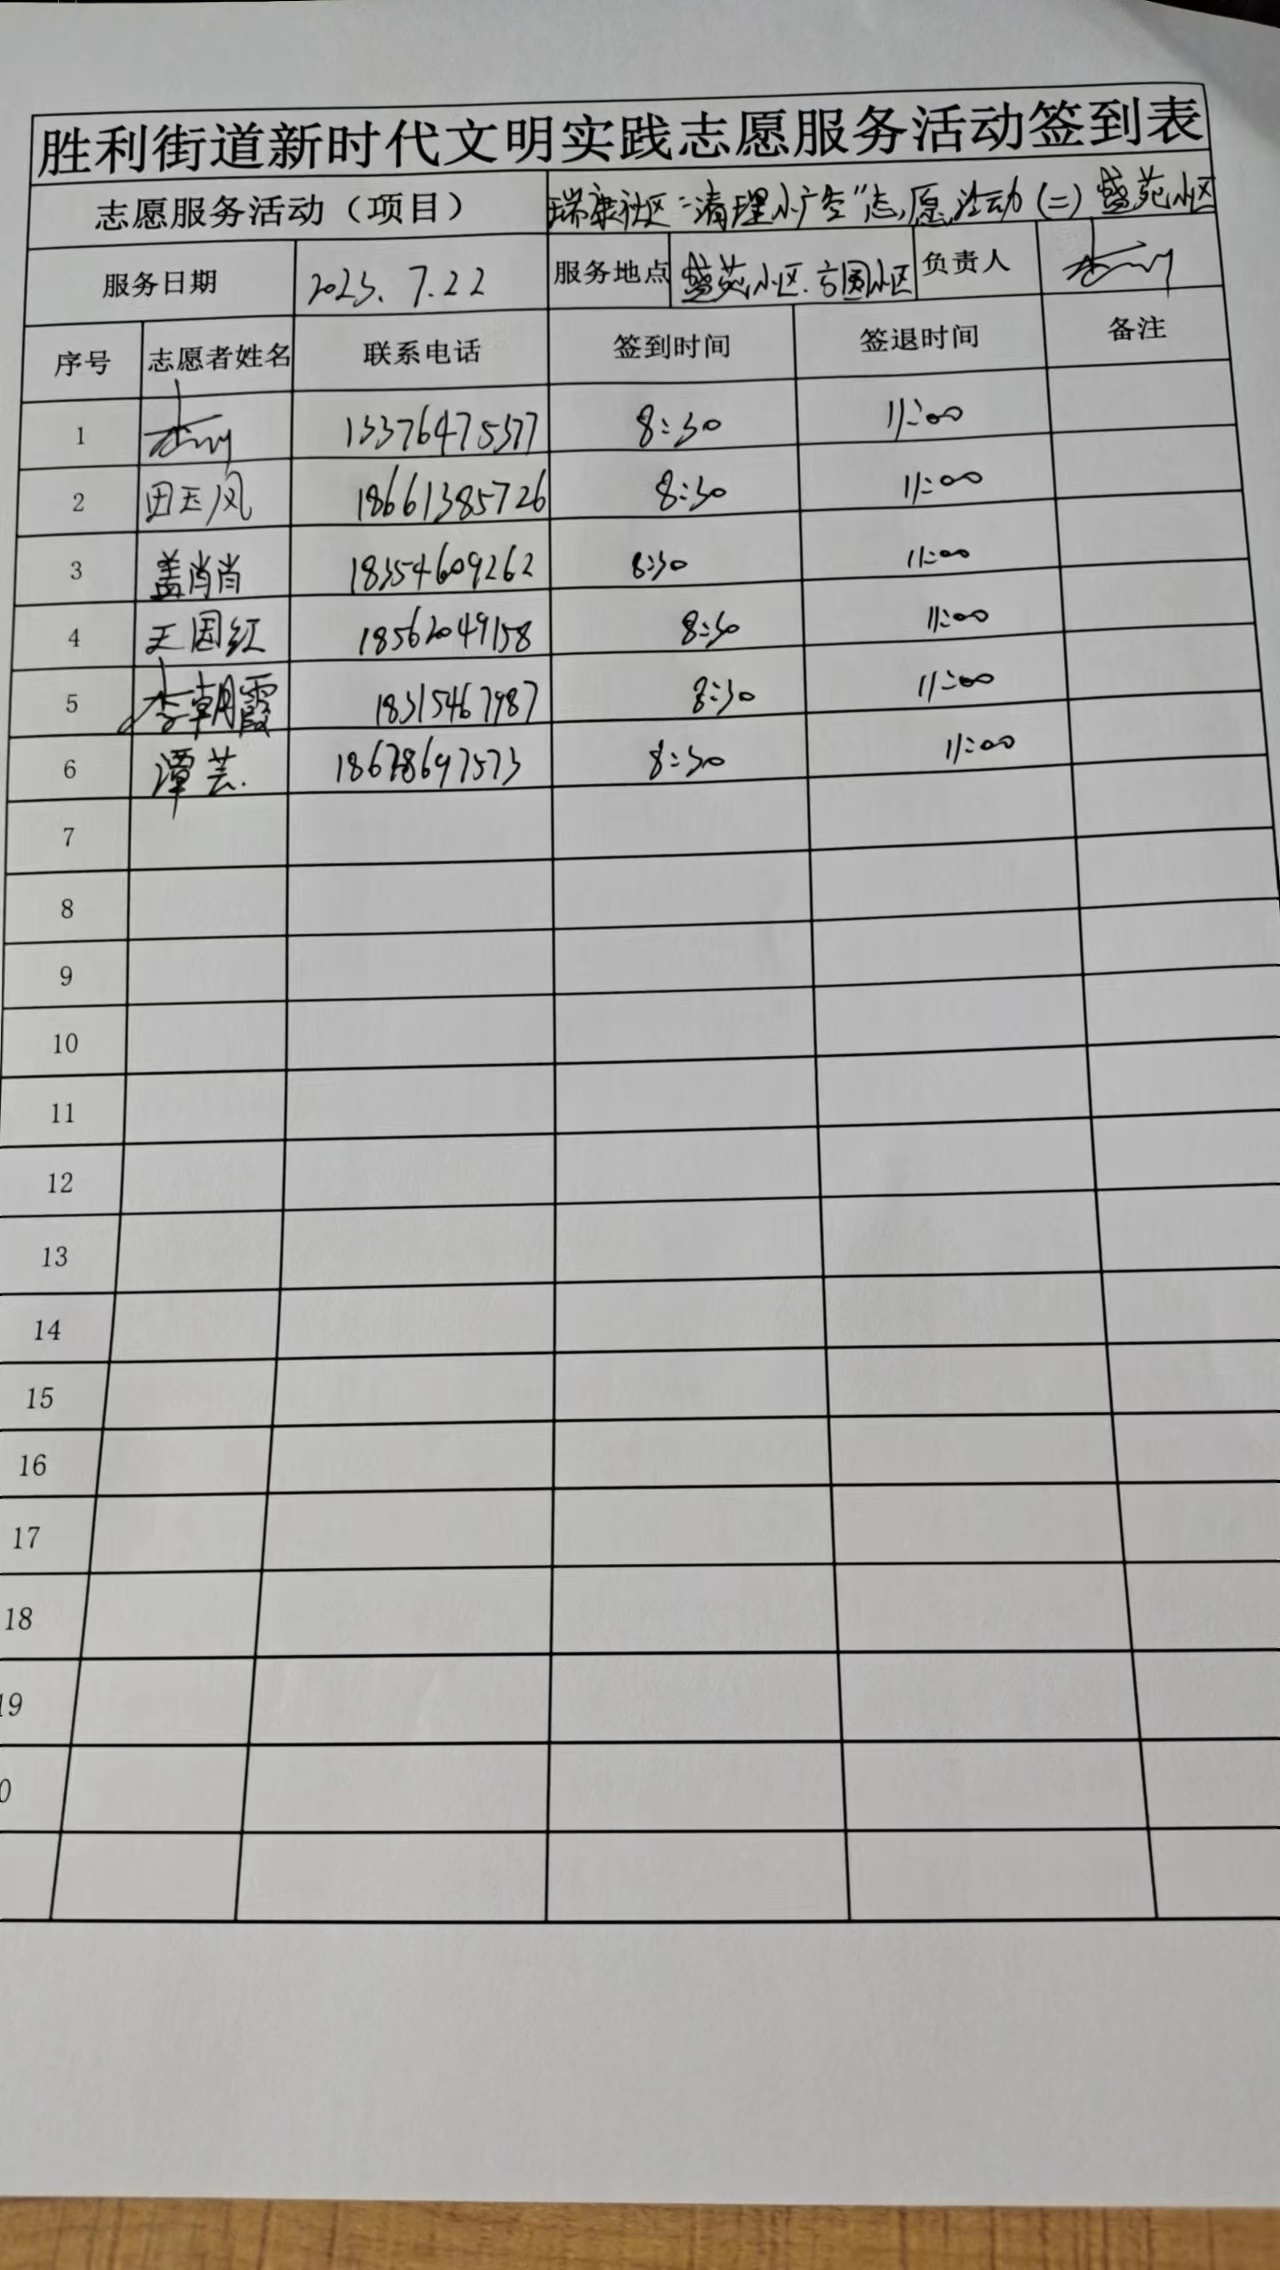 胜利街道新时代文明实践志愿服务活动签到表
志愿服务活动（项目） 瑞康社区"清理小广告"志愿活动(二) 盛苑小区
服务日期 2023.7.22 服务地点 盛苑小区.方圆小区 负责人
序号 志愿者姓名 联系电话 签到时间 签退时间 备注
1 13376475377 8:30 11:00
2 田玉凤 18661385726 8:30 11:00
3 盖肖肖 18354609262 8:30 11:00
4 王国红 18562049158 8:30 11:00
5 李朝霞 18315467987 8:30 11:00
6 谭芸. 18678697573 8:30 11:00
7
8
9
10
11
12
13
14
15
16
17
18
19
0